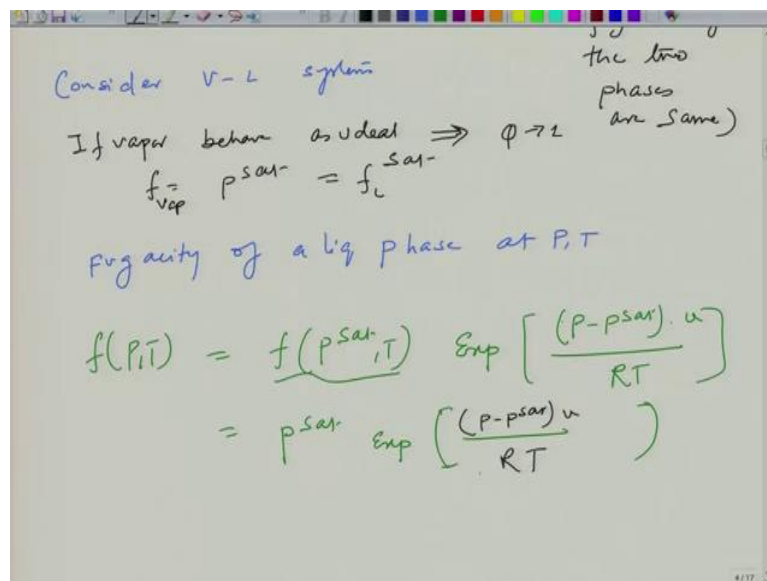 the two
phases
are same)
Consider V-L system
If vapor behave as ideal ⇒ φ→1
f_vap = p^sat = f_L^sat
Fugacity of a liq phase at P,T
f(P,T) = f(p^sat,T) Exp [ (P-p^sat).v / RT ]
= p^sat Exp [ (P-p^sat) v / RT )
4/17